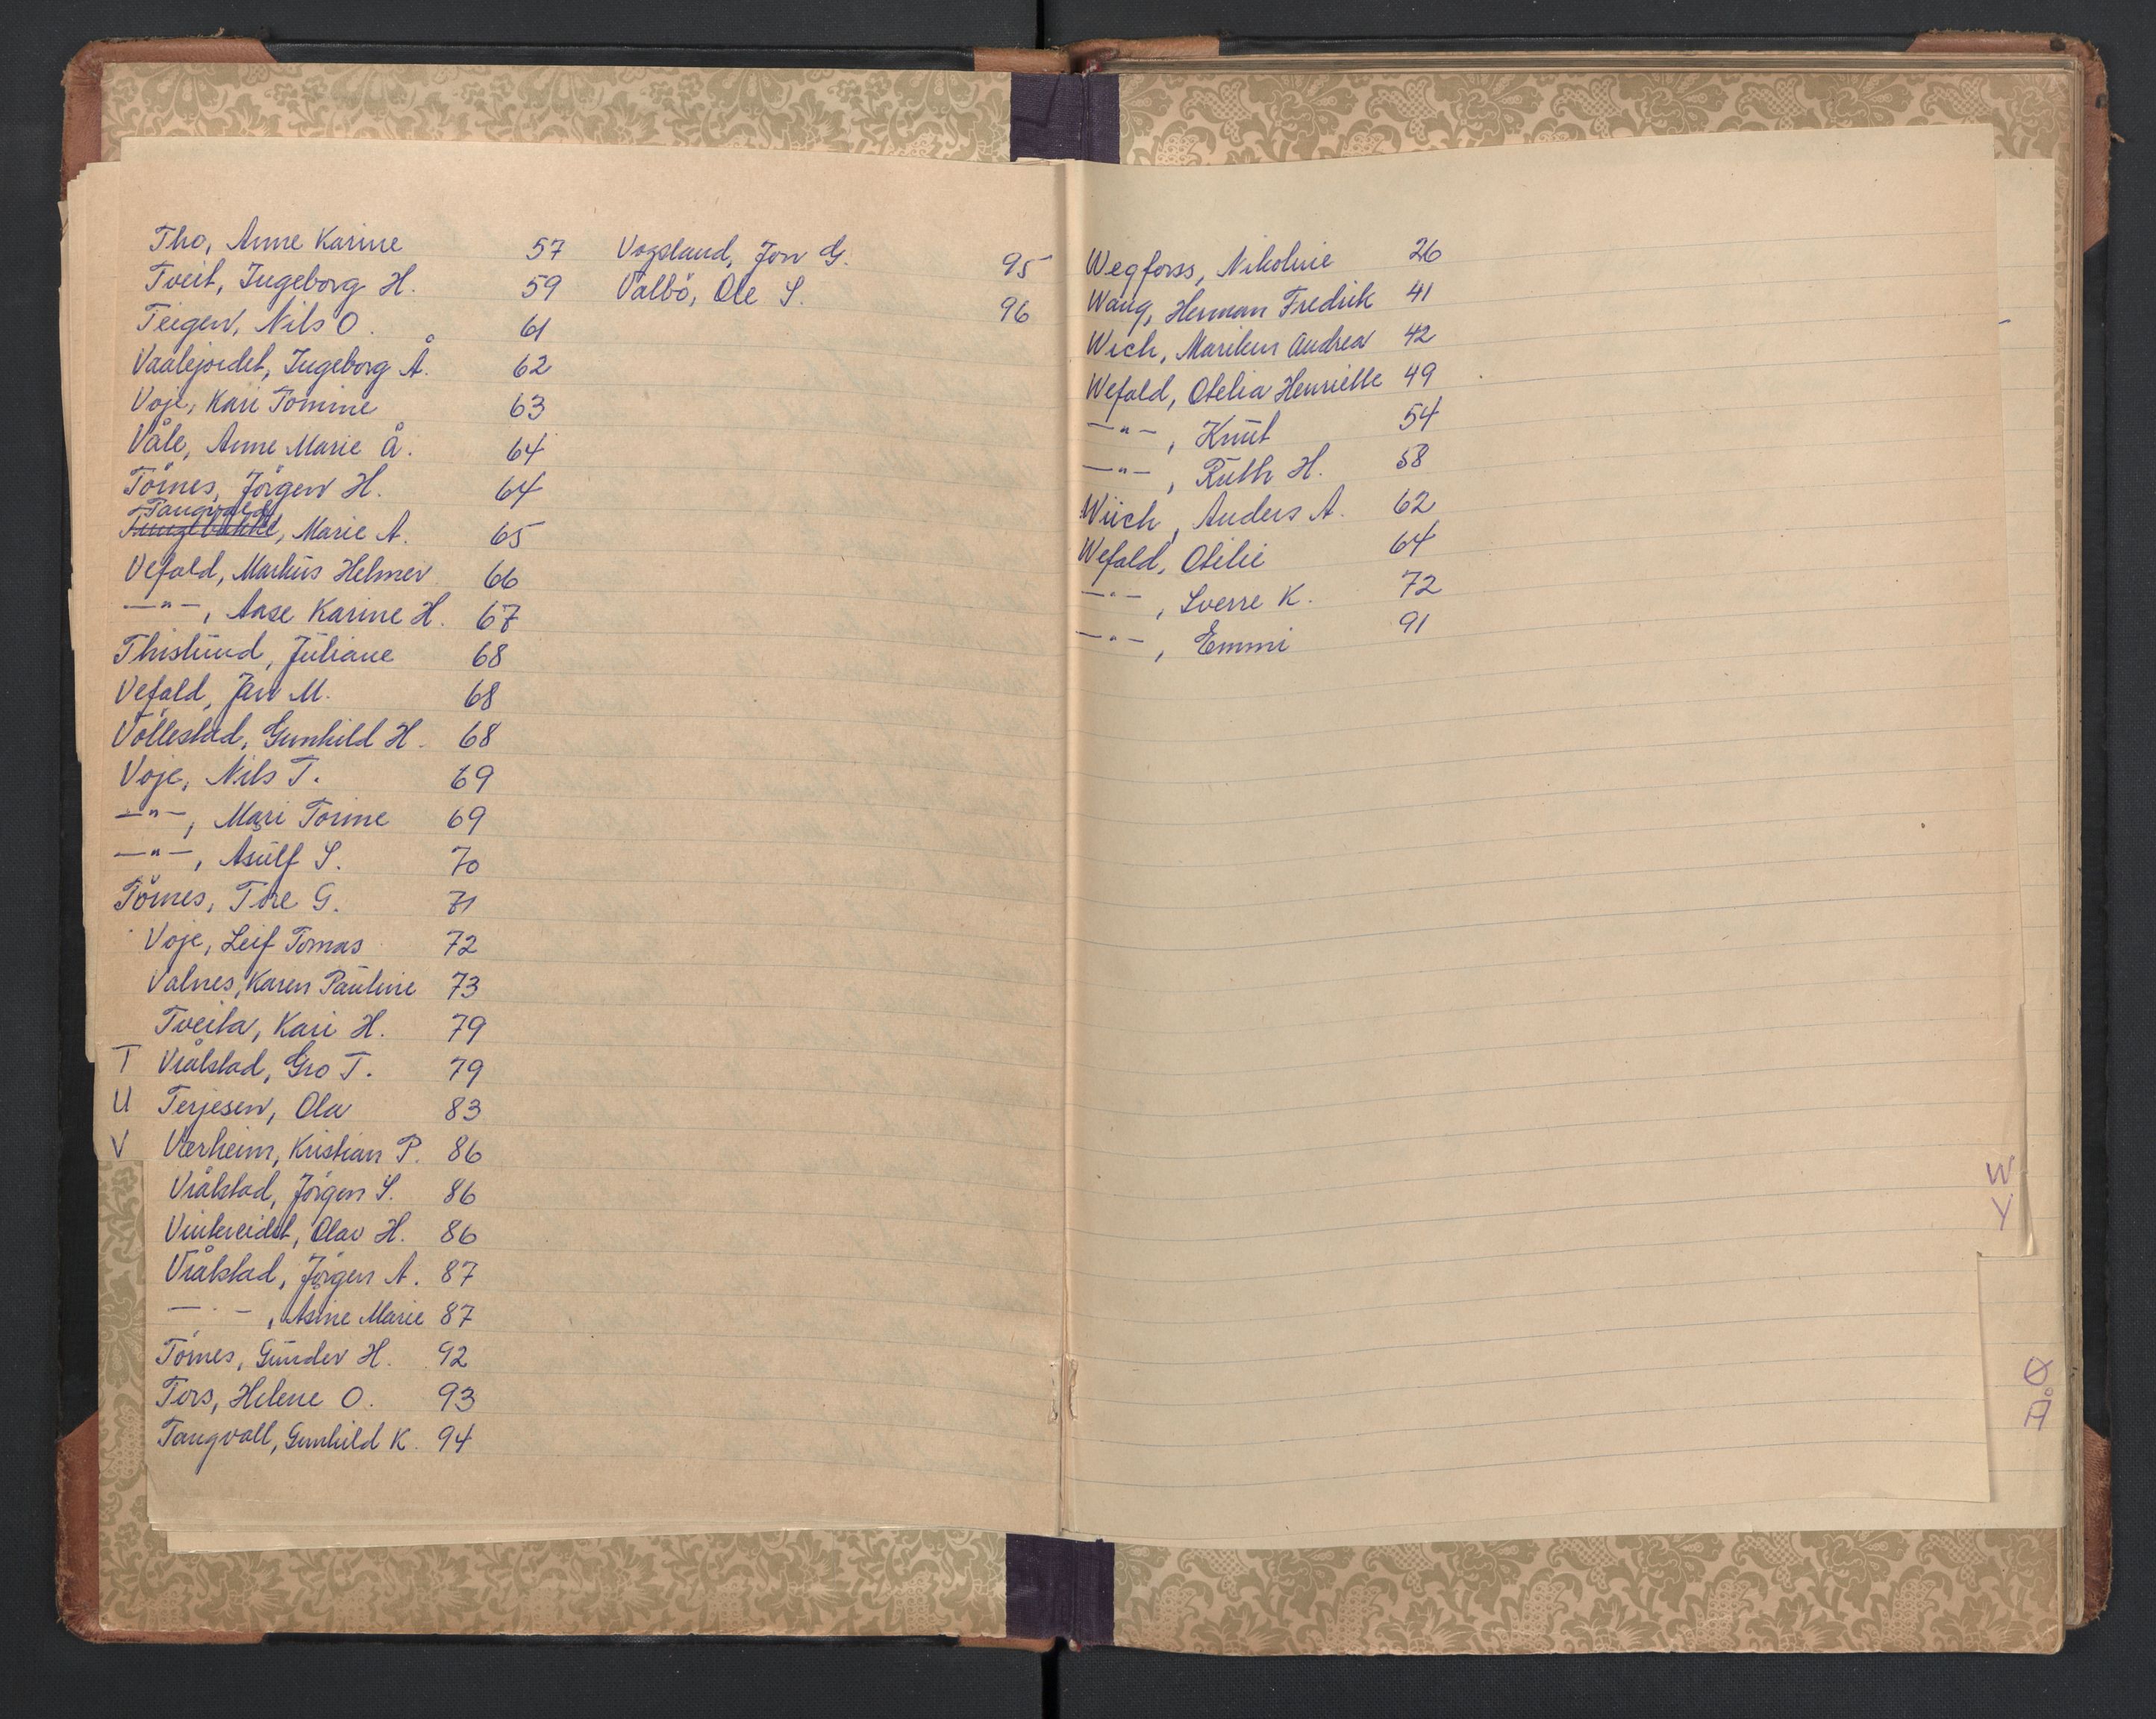 Tho, Anne Karine 57
Tveit, Ingeborg H. 59
Teigen, Nils O. 61
Vaalejordet, Ingeborg Å. 62
Voje, Kari Tomine 63
Våle, Anne Marie Å. 64
Törnes, Jörgen H. 64
Tangvald
, Marie A. 65
Vefald, Markus Helmer 66
—"—, Aase Karine H. 67
Thislund, Juliane 68
Vefald, Jan M. 68
Völlestad, Gunhild H. 68
Voje, Nils T. 69
—"—, Mari Tomine 69
—"—, Asulf S. 70
Törnes, Tore G. 71
Voje, Leif Tomas 72
Valnes, Karen Pauline 73
Tveita, Kari H. 79
T Vrålstad, Gro T. 79
U Terjesen, Ola 83
V Værheim, Kristian P. 86
Vrålstad, Jörgen S. 86
Vinkereidet, Olav H. 86
Vrålstad, Jörgen A. 87
—"—, Asine Marie 87
Törnes, Gunder H. 92
Tors, Helene O. 93
Tangvall, Gunhild K. 94
Vogsland, Jon G. 95
Valbö, Ole S. 96
Wegforss, Nikoline 26
Waug, Herman Fredrik 41
Wich, Marikun Andrea 42
Wefald, Otelia Henriette 49
—"—, Knut 54
—"—, Ruth H. 58
Wiich, Anders A. 62
Wefald, Otilie 64
—"—, Sverre K. 72
—"—, Emmi 91
W
Y
Ø
Å